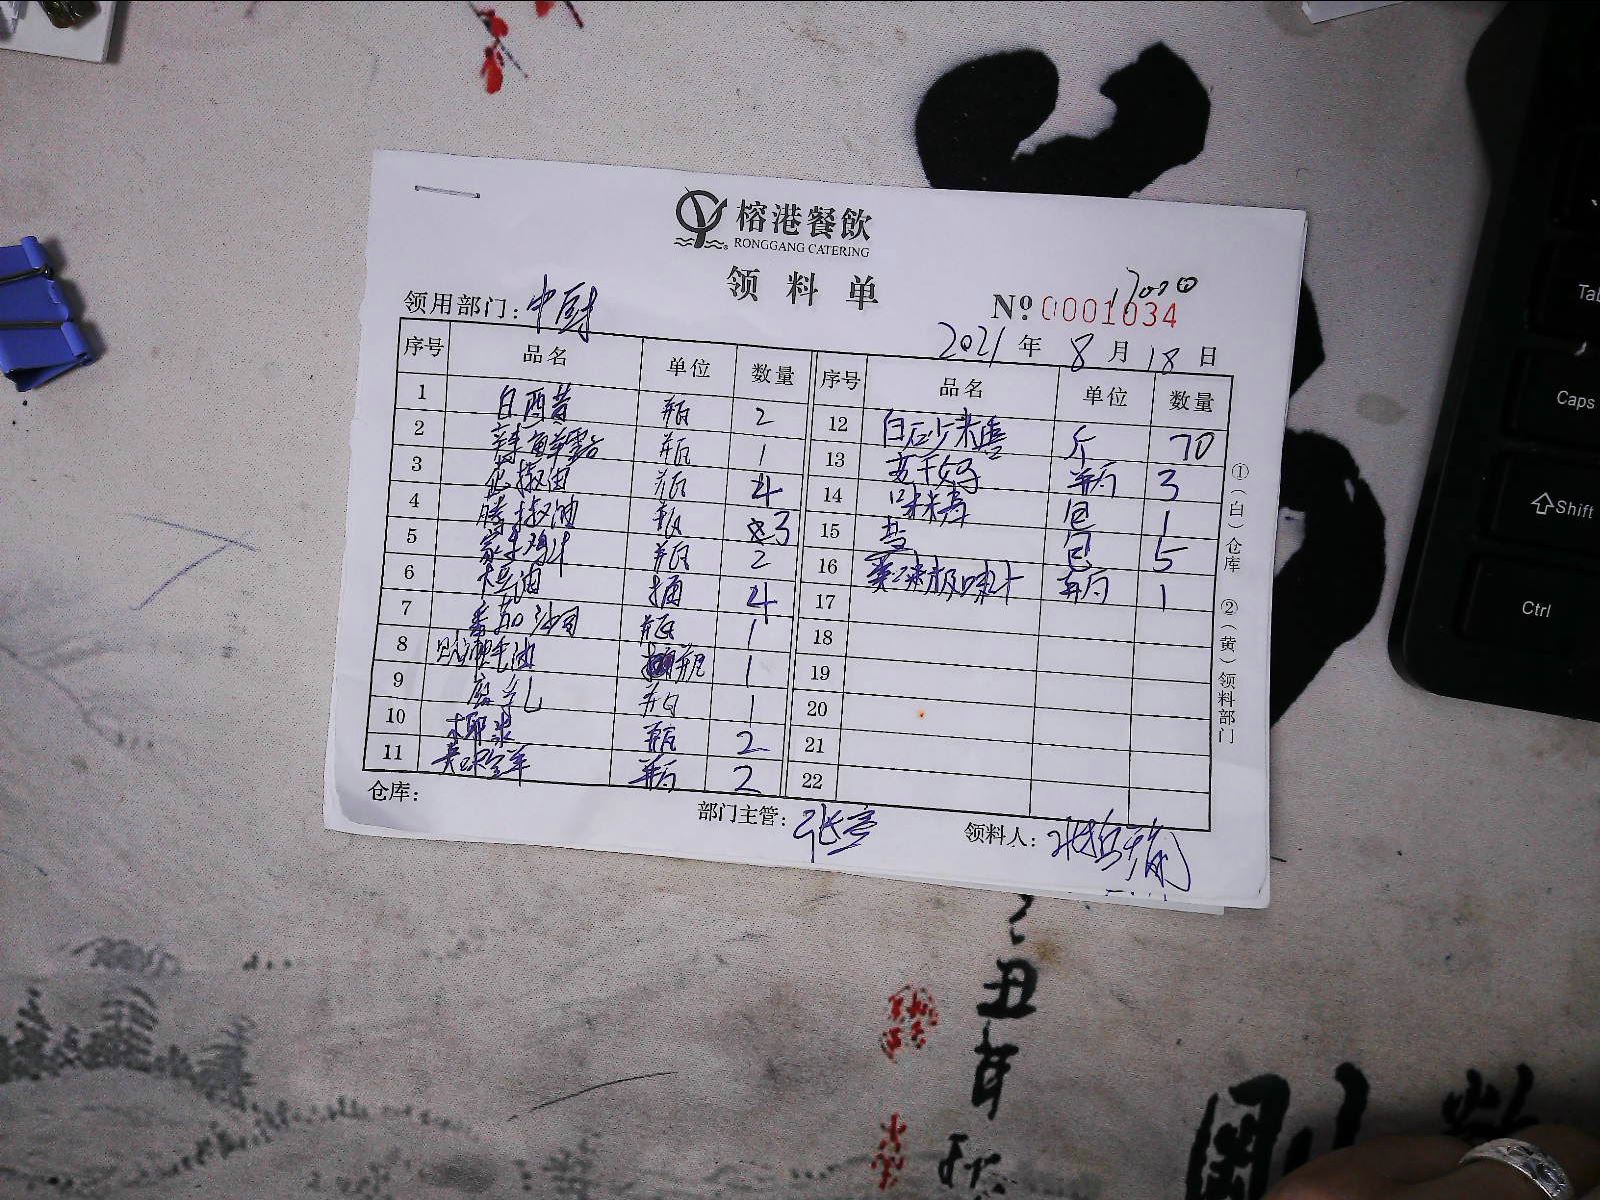 榕港餐飲
RONGGANG CATERING
领料单
领用部门：中厨
№ 0001034
2021 年 8 月 18 日
序号 品名 单位 数量 序号 品名 单位 数量
1 白西昔 瓶 2
2 辣鲜露 瓶 1
3 花椒油 瓶 4
4 藤椒油 瓶 3
5 家乐鸡汁 瓶 2
6 大豆油 桶 4
7 番茄沙司 瓶 1
8 油 瓶 1
9 腐乳 瓶 1
10 椰浆 瓶 2
11 瓶 2
12 白砂米 斤 70
13 瓶 3
14 味精 包 1
15 包 5
16 极味汁 瓶 1
17
18
19
20
21
22
①（白）仓库 ②（黄）领料部门
仓库：
部门主管：张亮
领料人：张
丑年秋
Tab
Caps
Shift
Ctrl